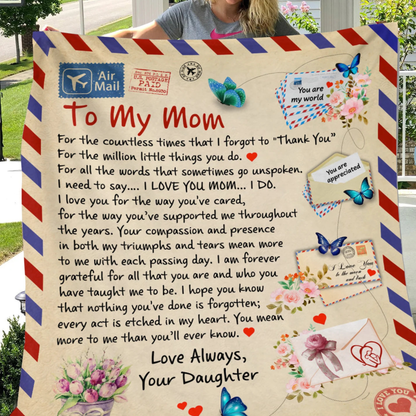 Air
Mail
U.S. POSTAGE
PAID
You are
my world
To My Mom
For the countless times that I forgot to "Thank You"
For the million little things you do.
For all the words that sometimes go unspoken.
I need to say.... I LOVE YOU MOM... I DO.
You are
appreciated
I love you for the way you've cared,
for the way you've supported me throughout
the years. Your compassion and presence
in both my triumphs and tears mean more
to me with each passing day. I am forever
grateful for all that you are and who you
have taught me to be. I hope you know
that nothing you've done is forgotten;
every act is etched in my heart. You mean
more to me than you'll ever know.
I Love You
to the moon
and back
Love Always,
Your Daughter
I LOVE YOU